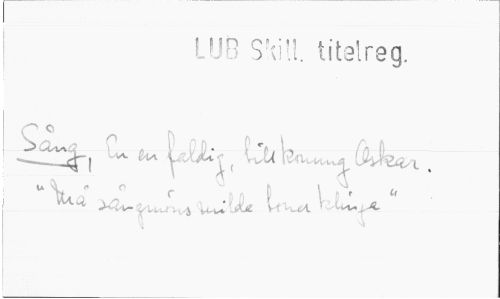 LUB Skill. titelreg.
Sång, En enfaldig, till konung Oskar.
"Må sångmöns milda toner klinga"